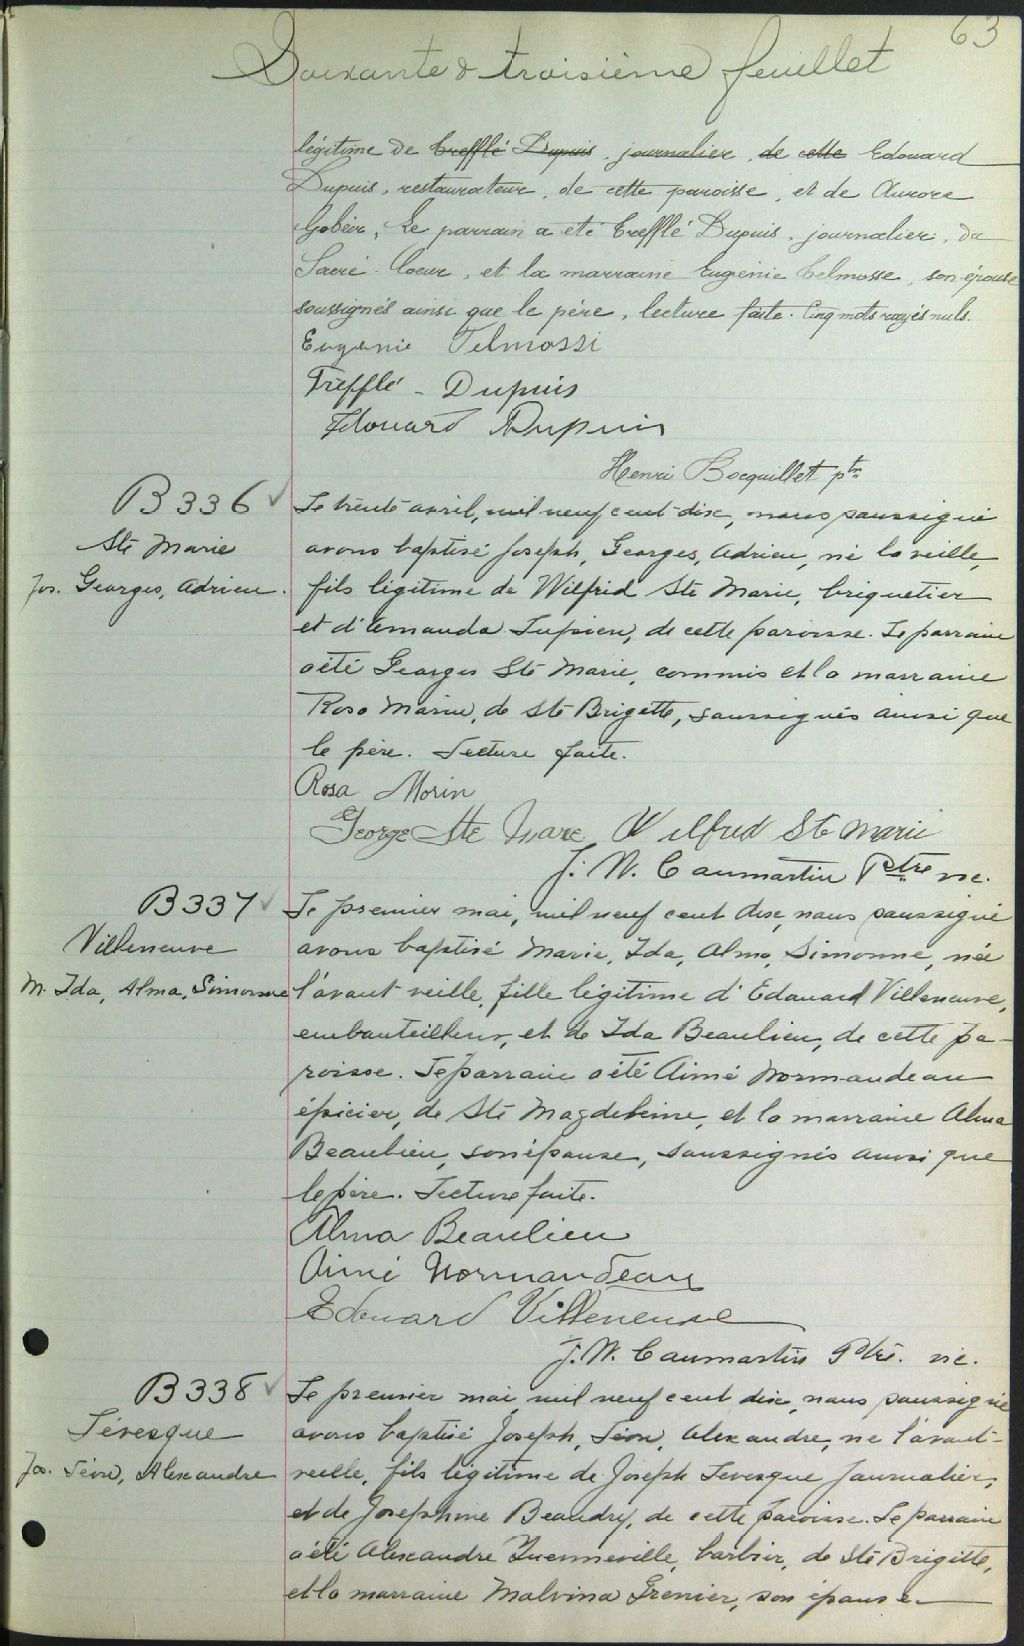 63
Soixante & troisième feuillet
légitime de Trefflé Dupuis, journalier, de cette Edouard
Dupuis, restaurateur, de cette paroisse, et de Aurore
Gobeir, Le parrain a été Trefflé Dupuis, journalier, du
Sacré-Coeur, et la marraine Eugénie Telmosse, son épouse
soussignés ainsi que le père, lecture faite. Cinq mots rayés nuls.
Eugenie Telmossi
Trefflé - Dupuis
Edouard Dupuis
Henri Bocquillet ptre
B336
Ste Marie
Jos. Georges, Adrien.
Le trente avril, mil neuf cent dix, nous soussigné
avons baptisé Joseph, Georges, Adrien, né la veille,
fils légitime de Wilfrid Ste Marie, briquetier
et d'Amanda Lupien, de cette paroisse. Le parrain
a été Georges Ste Marie, commis et la marraine
Rosa Morin, de Ste Brigette, soussignés ainsi que
le père. Lecture faite.
Rosa Morin
George Ste Mare Wilfred Ste Marie
J. N. Caumartin Ptre vic.
B337
Villeneuve
M. Ida, Alma, Simonne
Le premier mai, mil neuf cent dix, nous soussigné
avons baptisé Marie, Ida, Alma, Simonne, née
l'avant veille, fille légitime d'Edouard Villeneuve,
embouteilleur, et de Ida Beaulieu, de cette pa-
roisse. Le parrain a été Aimé Normandeau
épicier, de Ste Magdeleine, et la marraine Alma
Beaulieu, son épouse, soussignés ainsi que
le père. Lecture faite.
Alma Beaulieu
Aimé Normandeau
Edouard Villeneuve
J. N. Caumartin Ptre. vic.
B338
Lévesque
Jos. Léon, Alexandre
Le premier mai, mil neuf cent dix, nous soussigné
avons baptisé Joseph, Léon, Alexandre, né l'avant-
veille, fils légitime de Joseph Levesque journalier,
et de Josephine Beaudry, de cette paroisse. Le parrain
a été Alexandre Quenneville, barbier, de Ste Brigitte,
et la marraine Malvina Grenier, son épouse